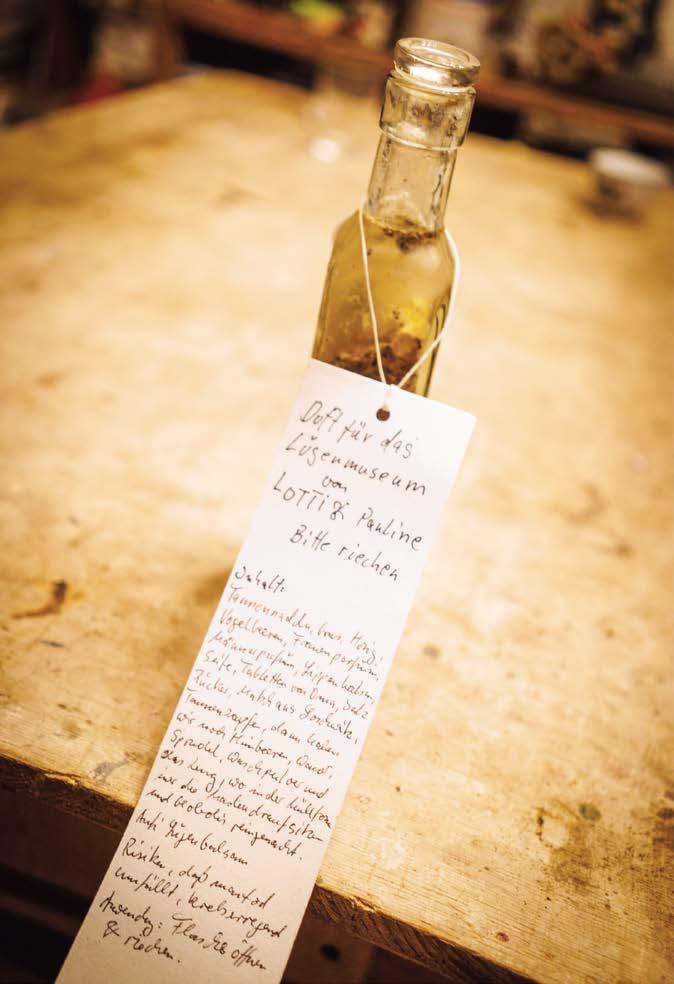 Duft für das
Lügenmuseum
von
LOTTI & Pauline
Bitte riechen
Inhalt:
Tannennadeln, Gras, Honig,
Vogelbeeren, Frauenparfüm,
Männerparfüm, Lippenbalsam,
Seife, Tabletten von Oma, Salz
Zucker, Matsch aus
Tannenzapfe, dann haben
wir noch Himbeeren, Wasser,
Sprudel, Waschpulver und
das Zeug, wo in der
wo die Maden drauf sitzen
und reingemacht.
Anti Lügenbalsam
Risiken, daß man tod
umfällt, krebserregend
Anwendung: Flasche öffnen
& riechen.